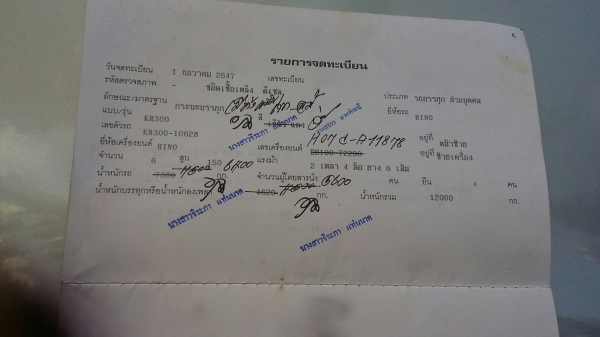 6
รายการจดทะเบียน
วันจดทะเบียน 1 ธันวาคม 2547 เลขทะเบียน
รหัสตรวจสภาพ - ชนิดเชื้อเพลิง ดีเซล ประเภท รถบรรทุก ส่วนบุคคล
ลักษณะ/มาตรฐาน กระบะบรรทุก ยี่ห้อรถ HINO
แบบ/รุ่น KR300 สี
เลขตัวรถ KR300-10628 อยู่ที่ หน้าซ้าย
ยี่ห้อเครื่องยนต์ HINO เลขเครื่องยนต์ H07C-A11878 EH100-72290 อยู่ที่ ซ้ายเครื่อง
จำนวน 6 สูบ 150 แรงม้า 2 เพลา 4 ล้อ ยาง 6 เส้น
น้ำหนักรถ 7380 กก. จำนวนผู้โดยสารนั่ง คน ยืน คน
น้ำหนักบรรทุกหรือน้ำหนักลงเพลา 4620 กก. น้ำหนักรวม 12000 กก.